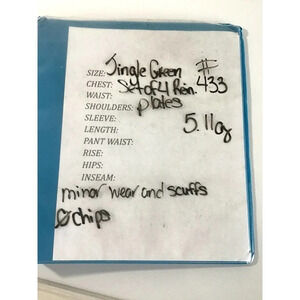 SIZE: Jingle Green #
CHEST: Set of 4 Rein. 433
WAIST: plates
SHOULDERS:
SLEEVE: 5.11oz
LENGTH:
PANT WAIST:
RISE:
HIPS:
INSEAM:
minor wear and scuffs
Ø chips